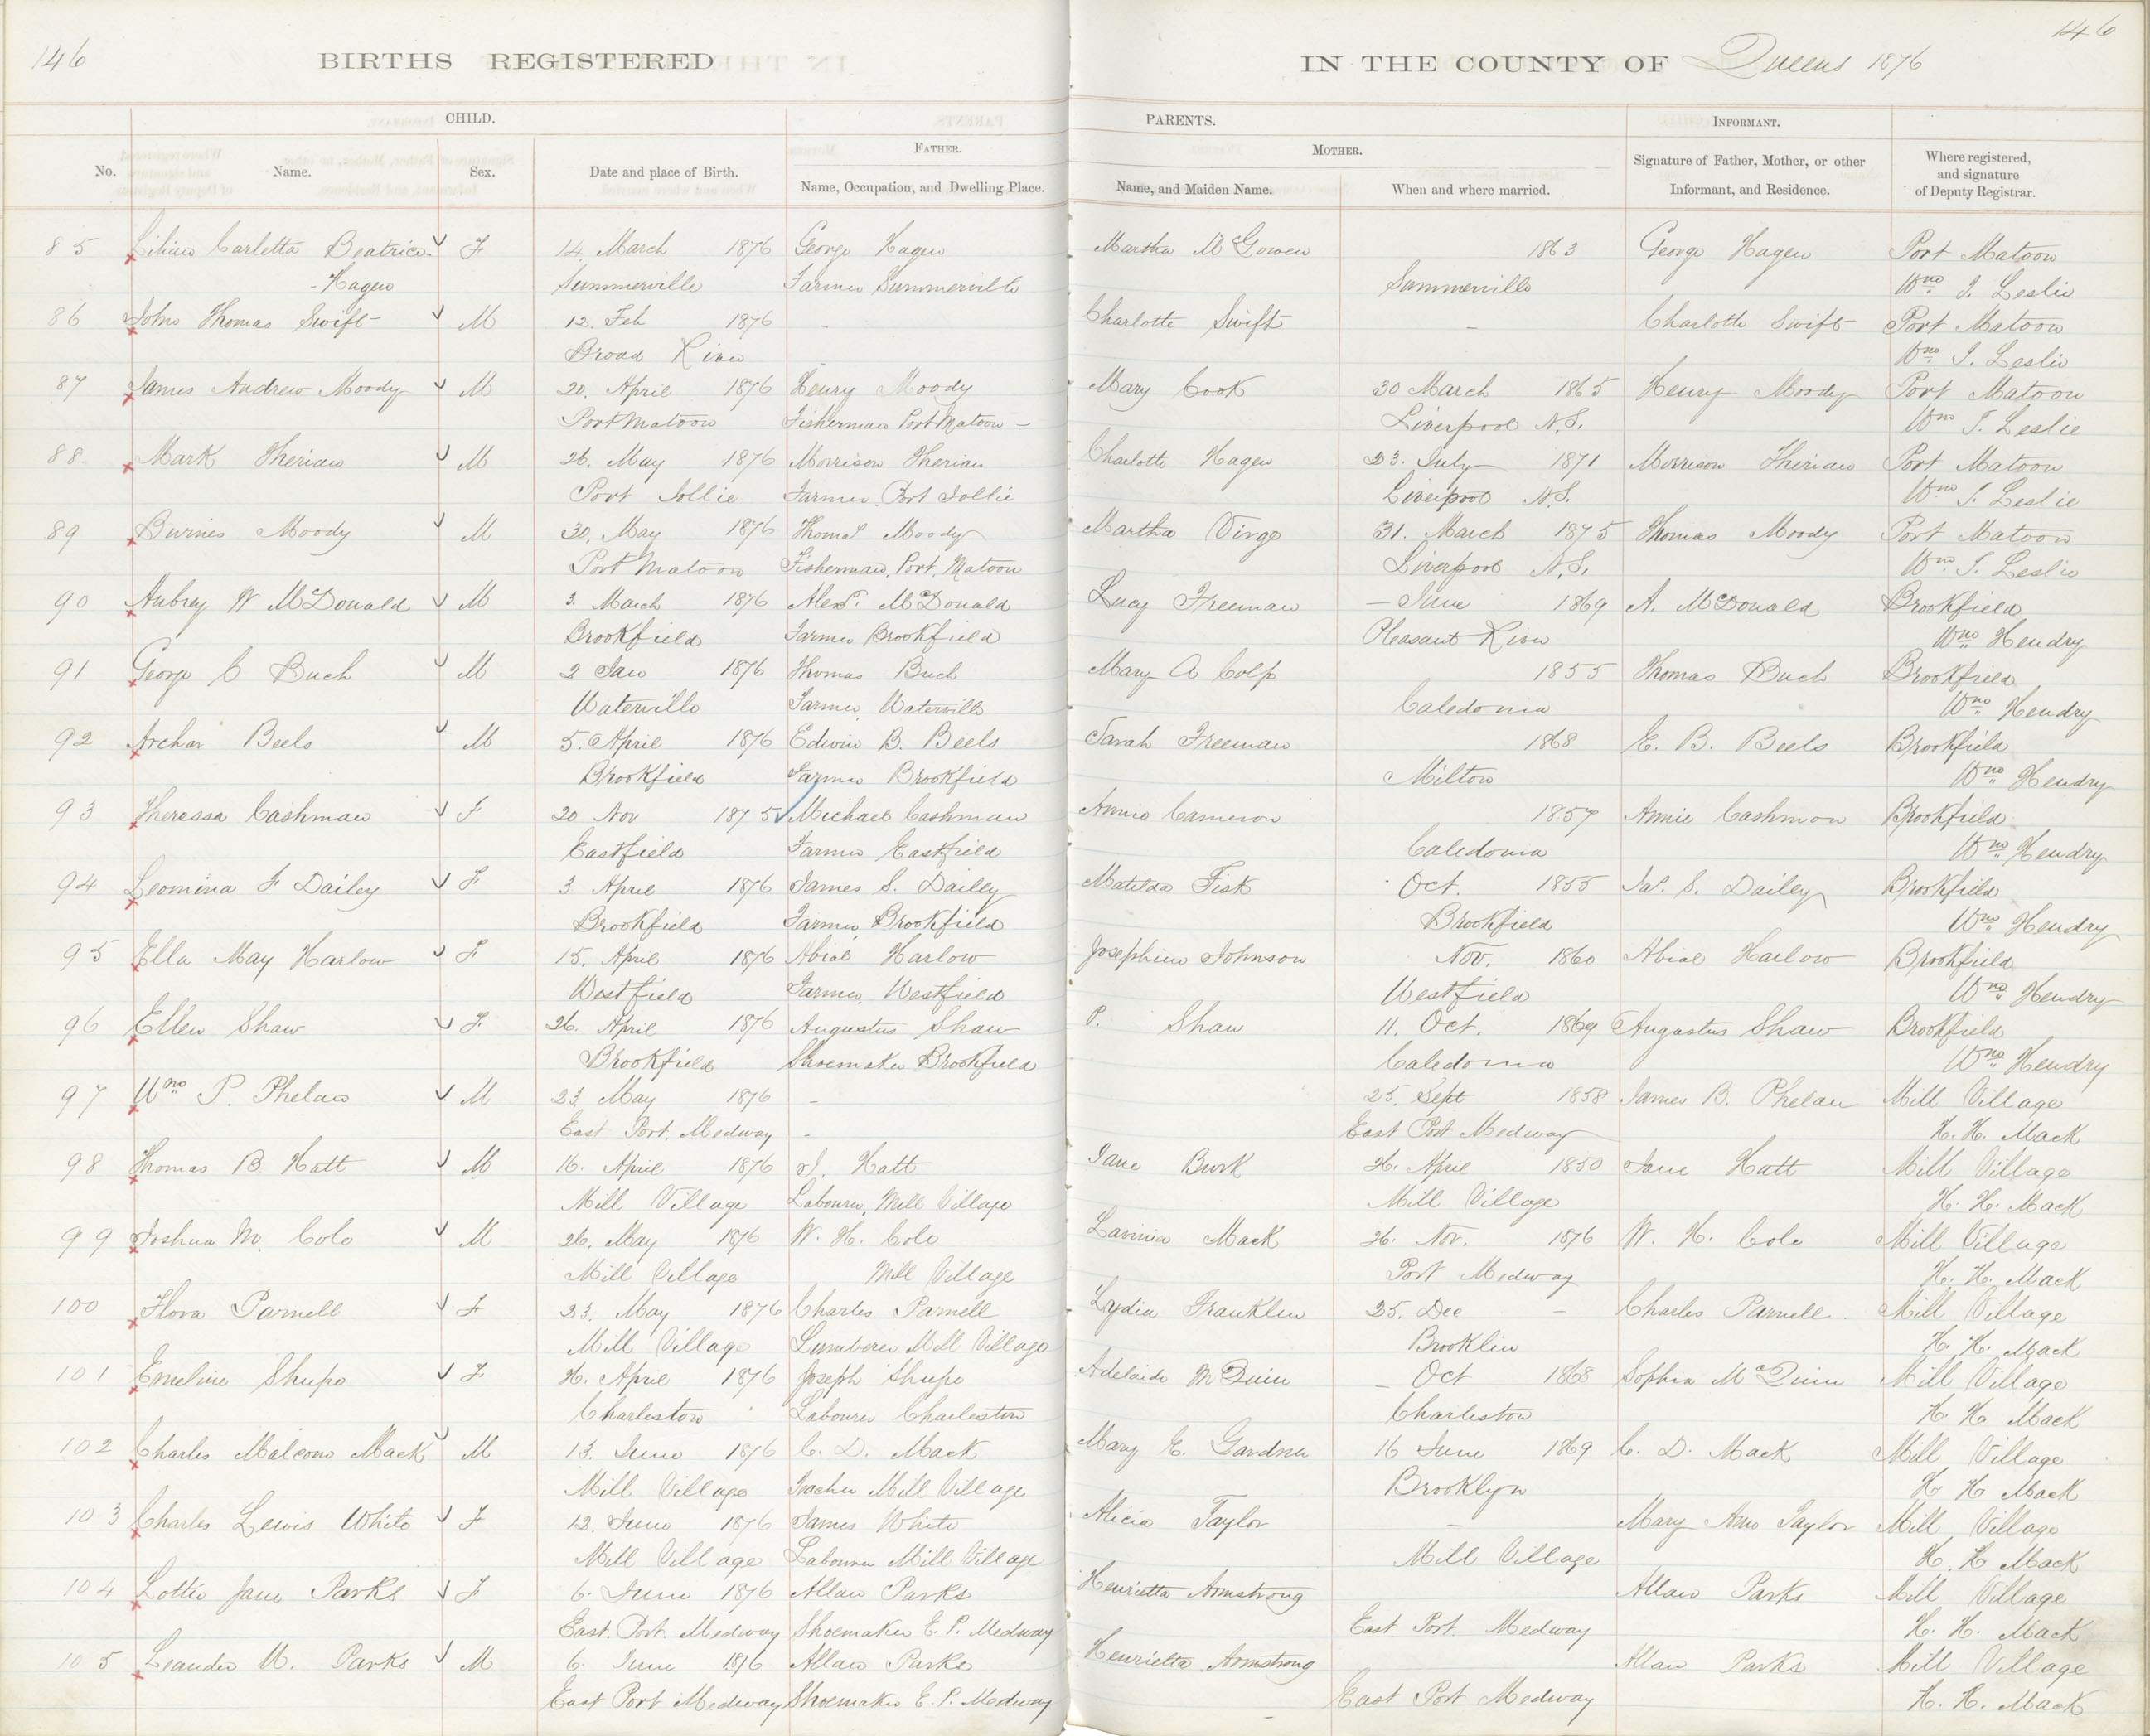 146
146
BIRTHS REGISTERED
IN THE COUNTY OF Queens 1876
CHILD.
PARENTS.
INFORMANT.
FATHER.
MOTHER.
No.
Name.
Sex.
Date and place of Birth.
Name, Occupation, and Dwelling Place.
Name, and Maiden Name.
When and where married.
Signature of Father, Mother, or other
Informant, and Residence.
Where registered,
and signature
of Deputy Registrar.
85 Lilian Carletta Beatrice F 14. March 1876 George Hagen Martha McGowen 1863 George Hagen Port Matoon
-Hagen Summerville Farmer Summerville Summerville Wm T. Leslie
86 John Thomas Swift M 12. Feb 1876 - Charlotte Swift - Charlotte Swift Port Matoon
Broad River Wm T. Leslie
87 James Andrew Moody M 20. April 1876 Henry Moody Mary Cook 30 March 1865 Henry Moody Port Matoon
Port Matoon Fisherman Port Matoon - Liverpool N.S. Wm T. Leslie
88 Mark Therian M 26. May 1876 Morrison Therian Charlotte Hagen 23. July 1871 Morrison Therian Port Matoon
Port Jollie Farmer. Port Jollie Liverpool N.S. Wm T. Leslie
89 Burnes Moody M 30. May 1876 Thomas Moody Martha Virgo 31. March 1875 Thomas Moody Port Matoon
Port Matoon Fisherman, Port. Matoon Liverpool N.S. Wm T. Leslie
90 Aubrey W McDonald M 3. March 1876 Alex. McDonald Lucy Freeman - June 1869 A. McDonald Brookfield
Brookfield Farmer Brookfield Pleasant River Wm Hendry
91 George C Buch M 2 Jan 1876 Thomas Buch Mary A Colp 1855 Thomas Buch Brookfield
Waterville Farmer, Waterville Caledonia Wm Hendry
92 Archar Beels M 5. April 1876 Edwin B. Beels Sarah Freeman 1868 E. B. Beels Brookfield
Brookfield Farmer Brookfield Milton Wm Hendry
93 Theressa Cashman F 20 Nov 1875 Michael Cashman Annie Cameron 1857 Annie Cashmon Brookfield
Eastfield Farmer Eastfield Caledonia Wm Hendry
94 Leomina F Dailey F 3 April 1876 James S. Dailey Matilda Fisk Oct. 1855 Jas. S. Dailey Brookfield
Brookfield Farmer, Brookfield Brookfield Wm Hendry
95 Ella May Harlow F 15. April 1876 Abial Harlow Josephine Johnson Nov. 1860 Abial Harlow Brookfield
Westfield Farmer, Westfield Westfield Wm Hendry
96 Ellen Shaw F 26. April 1876 Augustus Shaw P. Shaw 11. Oct. 1869 Augustus Shaw Brookfield
Brookfield Shoemaker Brookfield Caledonia Wm Hendry
97 Wm P. Phelan M 23. May 1876 - 25. Sept 1858 James B. Phelan Mill Village
East Port. Medway - East Port Medway H. H. Mack
98 Thomas B. Hatt M 16. April 1876 J. Hatt Jane Burk 26. April 1850 Jane Hatt Mill Village
Mill Village Labourer, Mill Village Mill Village H. H. Mack
99 Joshua M. Cole M 26. May 1876 W. H. Cole Lavinia Mack 26. Nov. 1876 W. H. Cole Mill Village
Mill Village Mill Village Port Medway H. H. Mack
100 Flora Parnell F 23. May 1876 Charles Parnell Lydia Franklin 25. Dec - Charles Parnell Mill Village
Mill Village Lumberer Mill Village Brooklin H. H. Mack
101 Emeline Shupe F 26. April 1876 Joseph Shupe Adelaide McQuin - Oct 1868 Sophia McQuin Mill Village
Charleston Labourer Charleston Charleston H. H. Mack
102 Charles Malcom Mack M 13. June 1876 C. D. Mack Mary E. Gardner 16 June 1869 C. D. Mack Mill Village
Mill Village Teacher Mill Village Brooklyn H H Mack
103 Charles Lewis White F 12. June 1876 James White Alicia Taylor - Mary Ann Taylor Mill Village
Mill Village Labourer Mill Village Mill Village H. H Mack
104 Lottie Jane Parks F 6. June 1876 Allan Parks Henrietta Armstrong Allan Parks Mill Village
East. Port. Medway Shoemaker E. P. Medway East Port Medway H. H. Mack
105 Leander U. Parks M 6. June 1876 Allan Parks Henrietta Armstrong Allan Parks Mill Village
East Port Medway Shoemaker E. P. Medway East Port Medway H. H. Mack